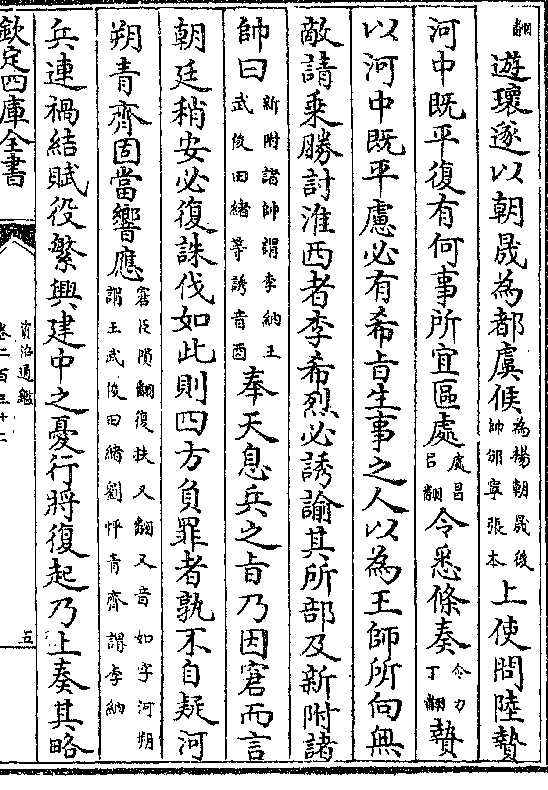 翻遊瓌遂以朝晟為都虞候為楊朝晟後帥邠寧張本上使問陸贄
河中既平復有何事所宜區處處昌呂翻令悉條奏令力丁翻贄
以河中既平慮必有希旨生事之人以為王師所向無
敵請乘勝討淮西者李希烈必誘諭其所部及新附諸
帥曰新附諸帥謂李納王武俊田緒等誘音酉奉天息兵之旨乃因窘而言
朝廷稍安必復誅伐如此則四方負罪者孰不自疑河
朔青齊固當響應窘巨隕翻復扶又翻又音如字河朔謂王武俊田緒劉怦青齊謂李納
兵連禍結賦役繁興建中之憂行將復起乃上奏其略
欽定四庫全書
資治通鑑
卷二百三十二
五